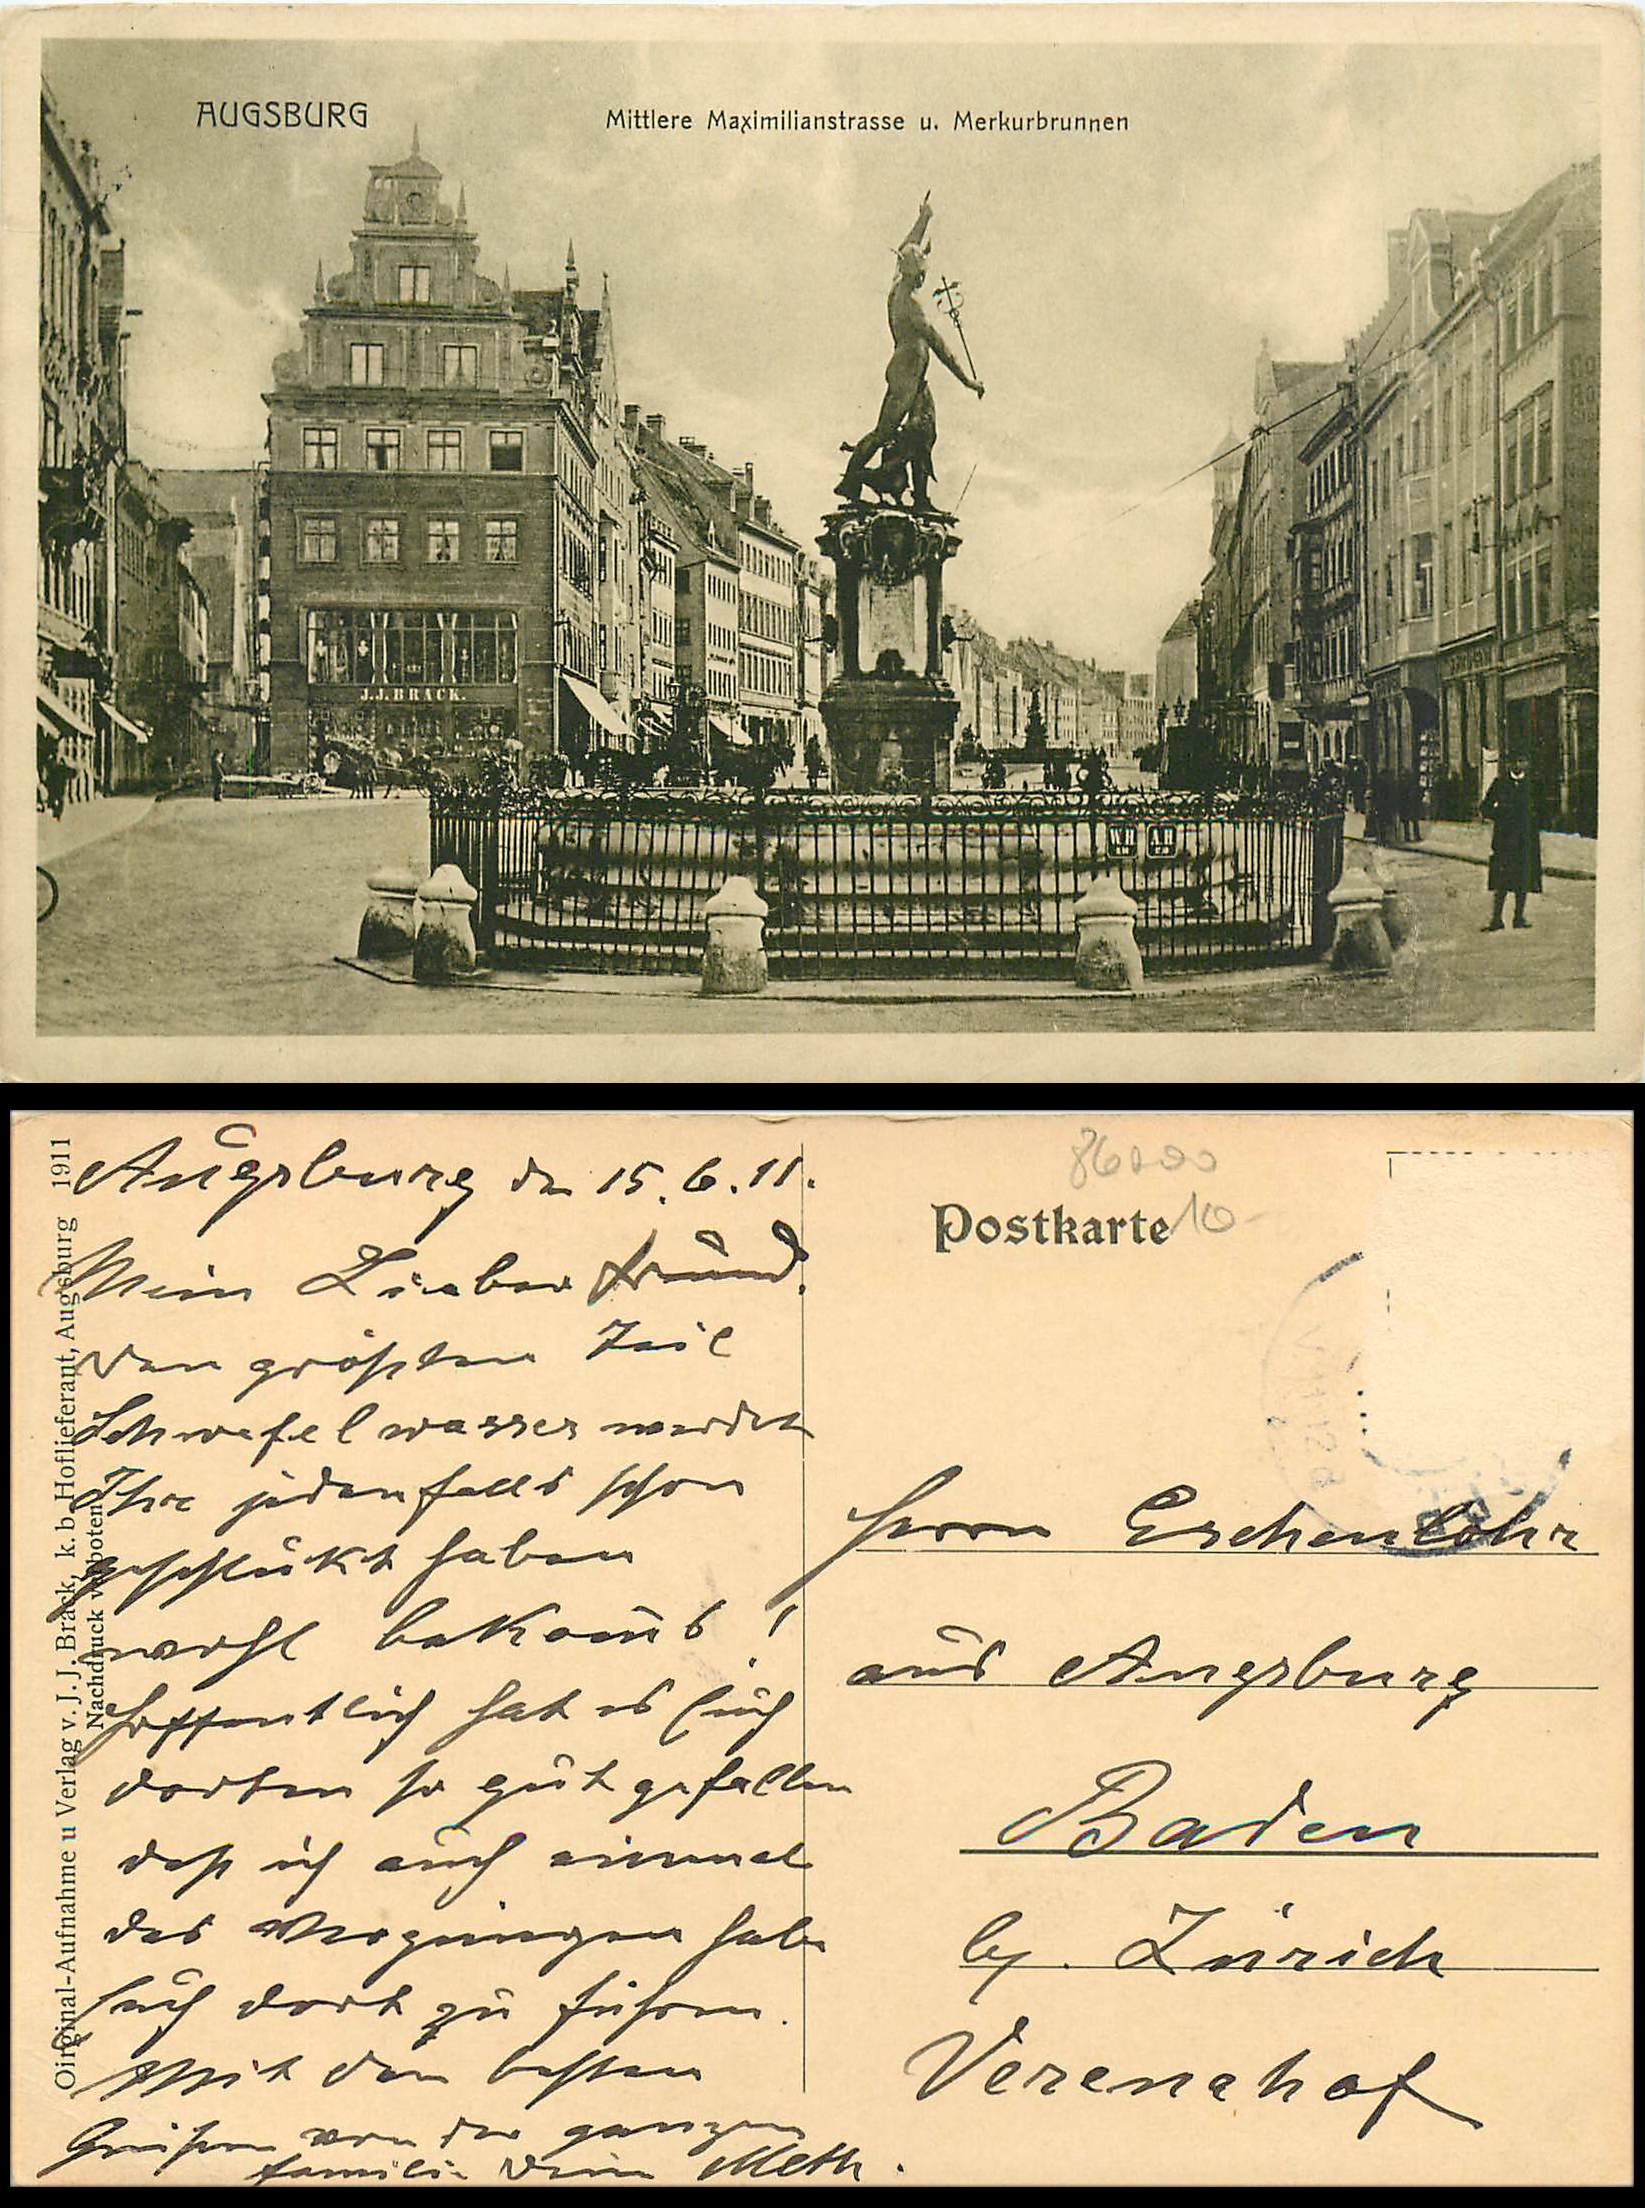 AUGSBURG
Mittlere Maximilianstrasse u. Merkurbrunnen
J.J. BRACK.
W.H A.H
Augsburg den 15.6.11.
Mein Lieber Freund.
Den größten Teil
Schwefelwasser werdet
Ihr jedenfalls schon
geschlukt haben
wohl bekoms!
Hoffentlich hat es Euch
dorten so gut gefallen
daß ich auch einmal
das Vergnügen habe
Euch dort zu führen.
Mit den besten
Grüßen von der ganzen
Familie Dein Meth.
Oirginal-Aufnahme u Verlag v. J. J. Brack, k. b. Hoflieferant, Augsburg 1911
Nachdruck verboten
86000
10-
Postkarte
Herrn Eschenlohr
aus Augsburg
Baden
by. Zürich
Verenahof